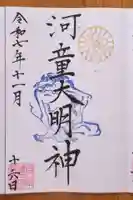 河童大明神
令和七年十一月
十六日